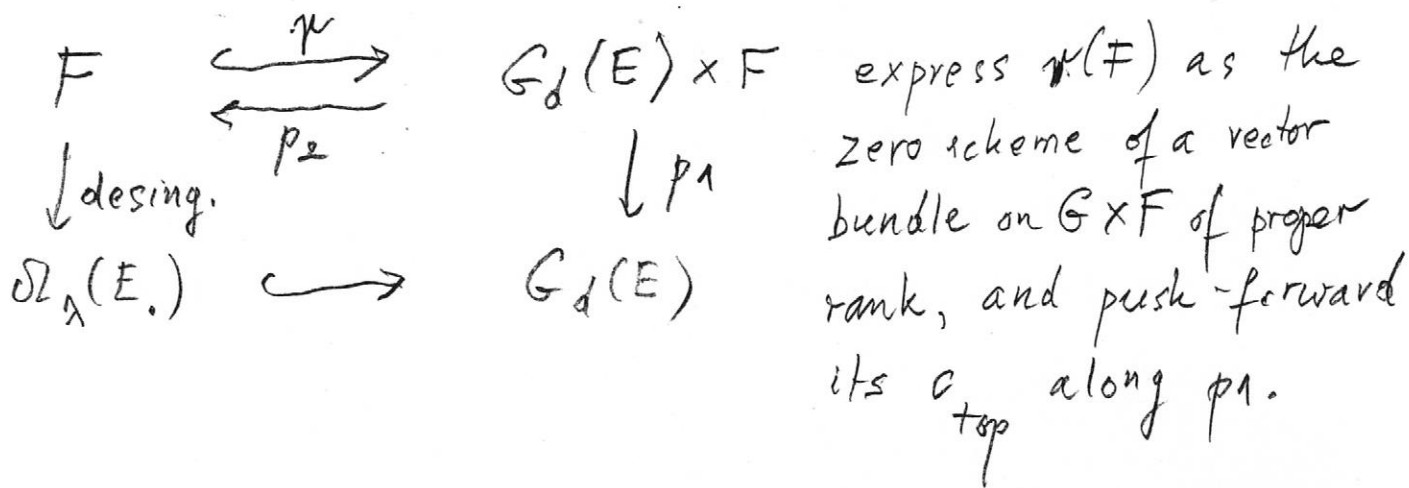 F
r
p2
G_d(E) × F
desing.
p1
Ω_λ(E.)
G_d(E)
express r(F) as the
zero scheme of a vector
bundle on G×F of proper
rank, and push-forward
its c_top along p1.